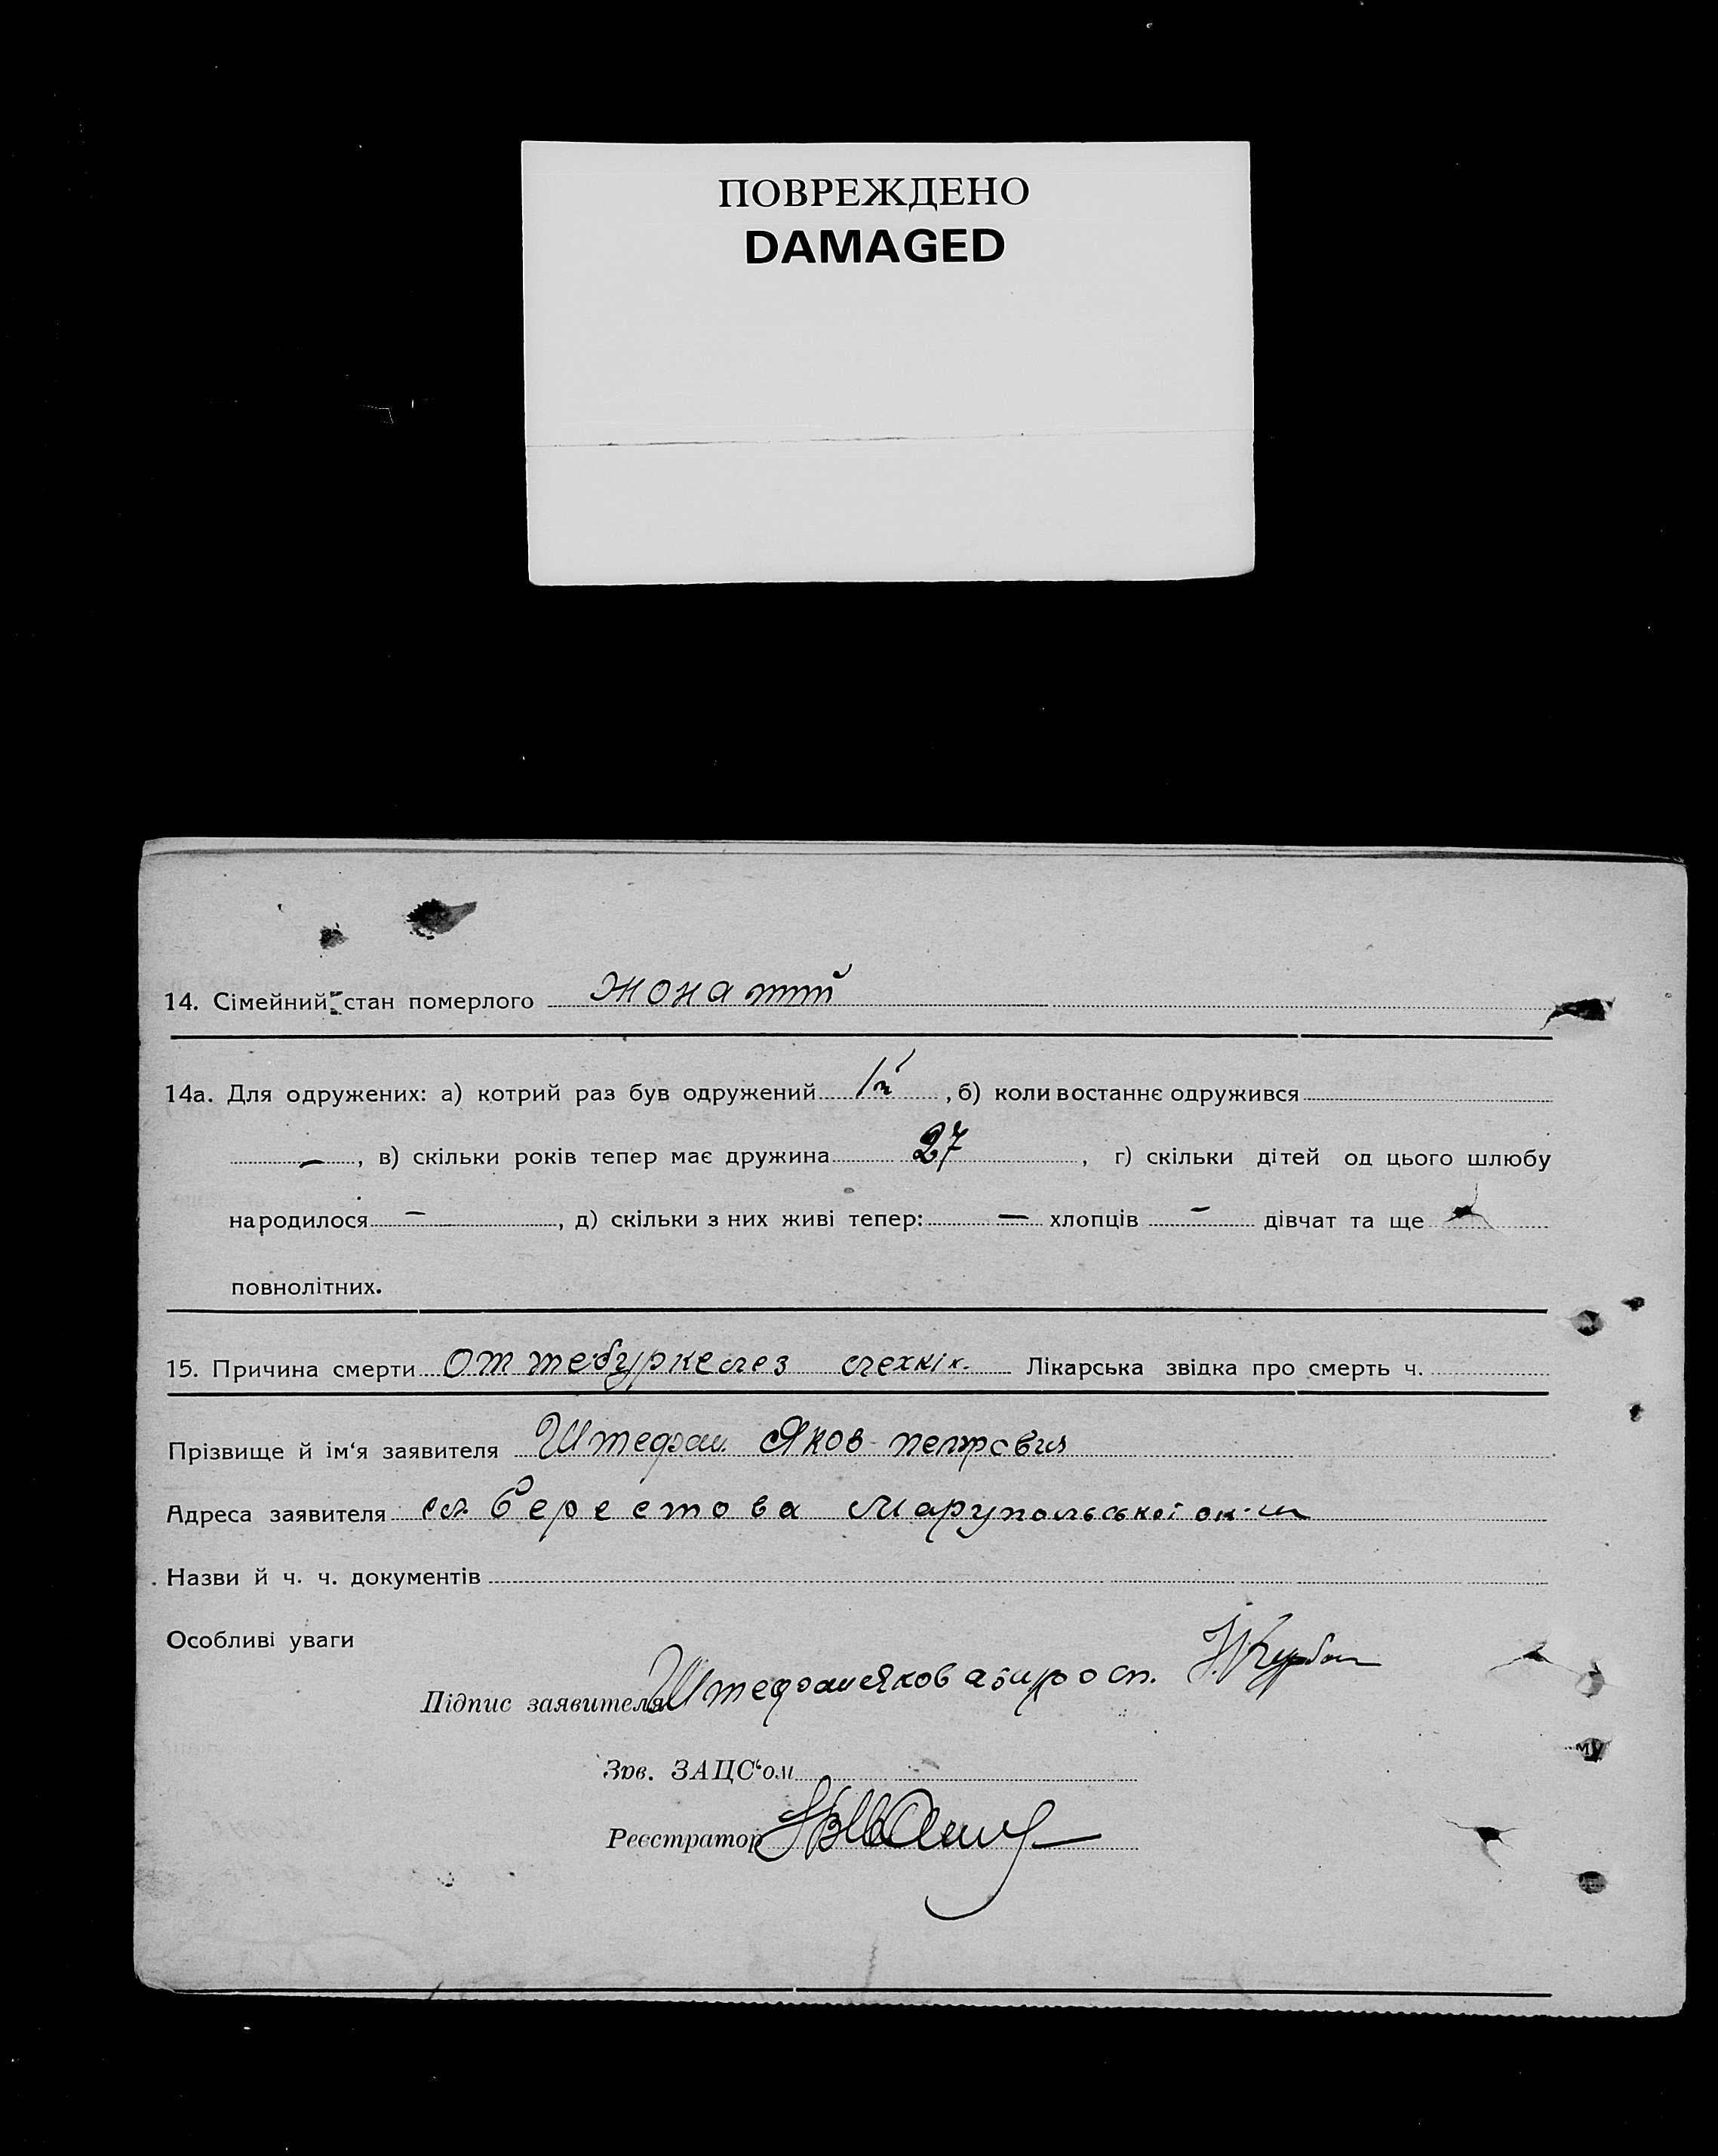 ПОВРЕЖДЕНО
DAMAGED
14. Сімейний стан померлого жонатий
14а. Для одружених: а) котрий раз був одружений 1й, б) коли востаннє одружився
–, в) скільки років тепер має дружина 27, г) скільки дітей од цього шлюбу
народилося –, д) скільки з них живі тепер: – хлопців – дівчат та ще
повнолітних.
15. Причина смерти от тебуркелез легкіх. Лікарська звідка про смерть ч.
Прізвище й ім‘я заявителя Штефан Яков петрович
Адреса заявителя сл Берестова Марупольської ок-и
Назви й ч. ч. документів
Особливі уваги
Підпис заявителя Штефан Яков
Зав. ЗАЦС‘ом
Реєстратор
му